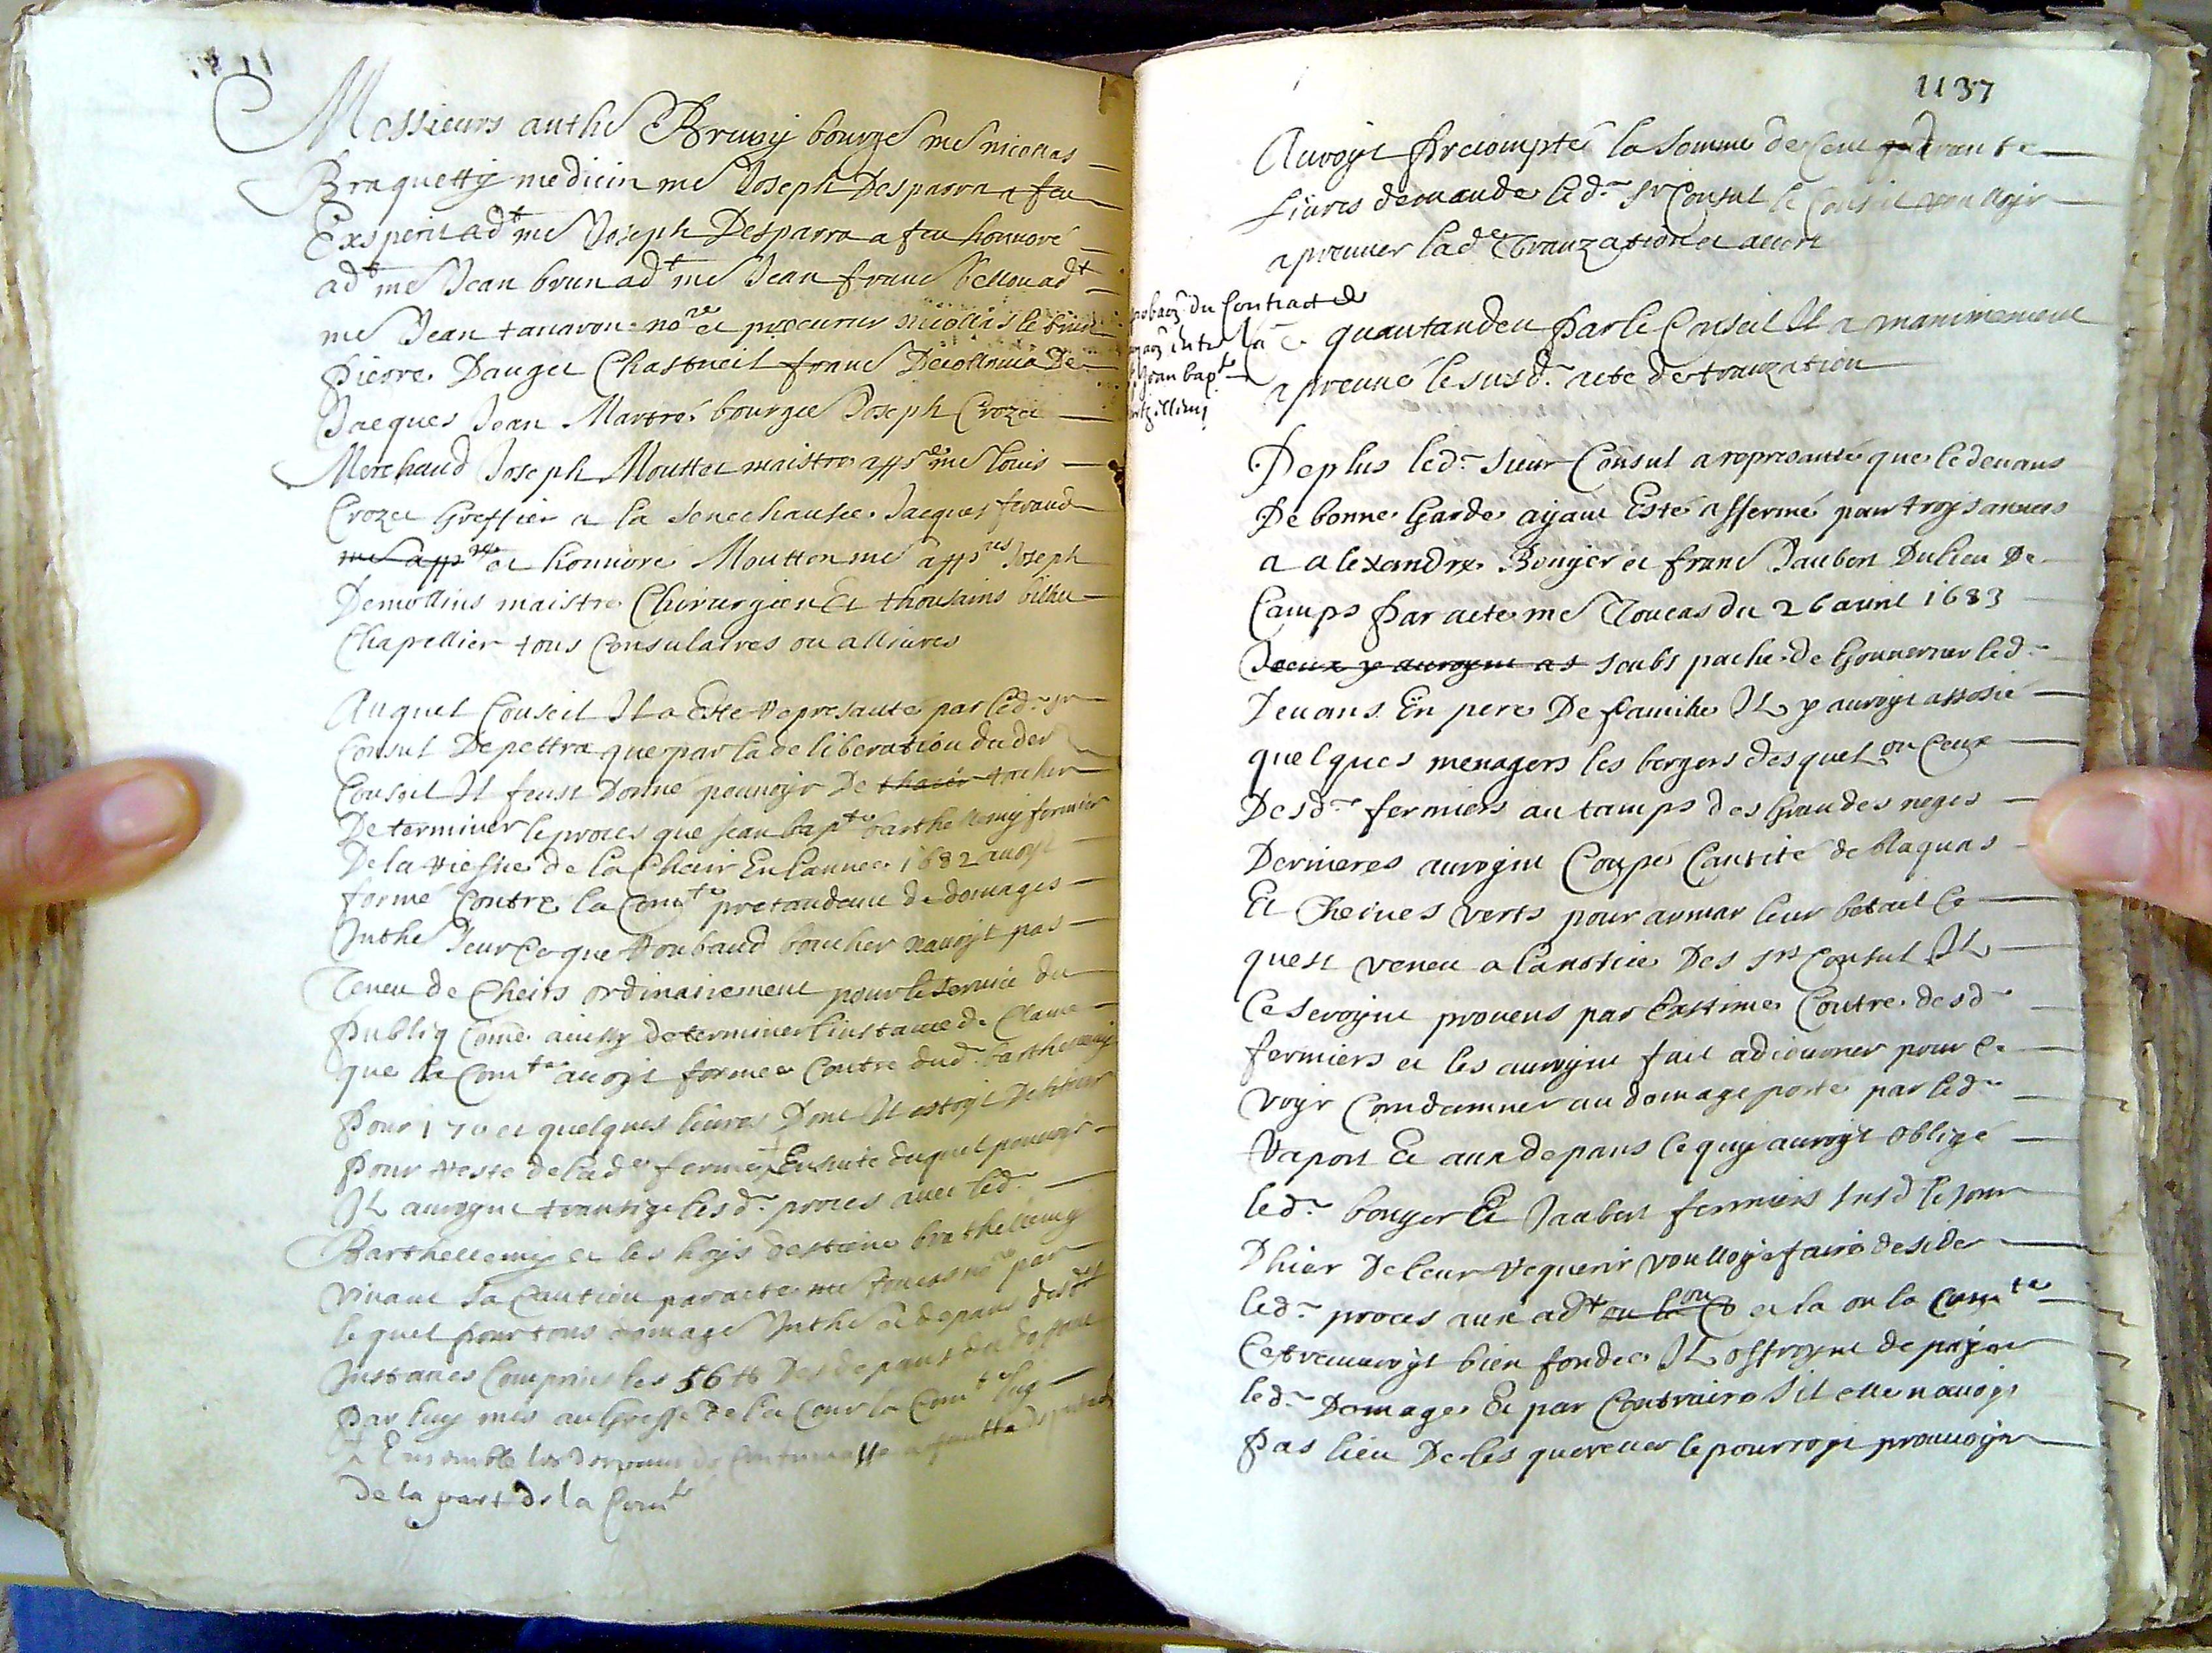 Messieurs anthe Bruny bourges me nicollas
Braquetty medicin me Joseph Desparra a feu
Exsperit adt me Joseph Desparra a feu honnoré
adt me Jean brun adt me Jean franc bellon adt
me Jean tanaron nore et procureur nicollas le brun
pierre Dauget Chastueil franc Decollonia De
Jacques Jean Martre bourges Joseph Croze
Merchand Joseph Mouttet maistre appre me Louis
Croze Greffier a la Senechausee Jacques feraud
me appre et honnore Moutton me appres Joseph
Demollins maistre Chirurgien Et thousains
Chapellier tous Consulaires ou allivres
Auquel Conseil Il a Este represanté par led. sr
Consul Depettra que par la deliberation du der
Conseil Il feust Donné pouvoyr De thacér tacher
De terminer le proces que Jean bapte barthellemy fermier
De la rieshe de la Chair En lannee 1682 avoyt
formé Contre la Comte pretandant de domages
Inthe Sur Ce que Roubaud boucher navoyt pas
Teneu de Cheirs ordinairement pour le Service du
publiq Come ainsy determiner linstance de Clame
que la Comte avoyt formee Contre dud. barthellemy
pour 170 et quelques livres Dont Il estoyt Debiteur
pour reste de lade ferme + Ensuite duquel pouvoyr
Il auroyent transige lesd. proces avec led.
Barthellemy et les hoyrs destiene barthellemy
vivant sa Caution par acte me toucas nore par
le quel pour tous domage Inthe et depans desd
Instances Comprins les 56 tt Des depans
par luy mis au Greffe de la Cour la Comte luy
+ Ensemble les de Contumasse a fautte
de la part de la Comte

1137
Auroyt precompté la Somme de Cent quarante
livres demande led. Sr Consul le Conseil voulloyr
aprouver lade Tranzation et acort
probaon du Contract de
gaon entr la Cte
Jean bapte
barthellemy
quantandeu par le Conseil Il a unanimement
aprouvé le susd. acte de tranzation
De plus led. Sieur Consul a represanté que le devans
De bonne Garde ayant Esté affermé pour troys annees
a alexandre Bouyer et franc Jaubert Du lieu De
Camps par acte me Toucas du 26 avril 1683
Iceux y auroyent as soubs pache de Gouverner led.
Devans En pere De famille Il y auroyt assosié
quelques menagers les bergers desquels ou Ceux
Desd. fermiers au tamps des Grandes neges
Dernieres auroynt Coupé Cantité de blaquas
Et Cheines verts pour armar leur betail Ce
quest veneu a la notice Des srs Consul Il
Ce seroynt proveus par Exstime Contre desd
fermiers et les auroynt fait adiourner pour Ce
voyr Comdamner au domage porté par led.
Raport Et aux depans Ce quy auroyt obligé
led. bouyer Et Jaubert fermiers susd le jour
Dhier De leur requerir voulloyr faire desider
led. proces aux adt ou la Co et la ou la Comte
Ce treuveroyt bien fondee Il offroyent de payer
led. Domage Et par Contraire sil elle navoyt
pas lieu De les quereller le pourroyt prouvoyr